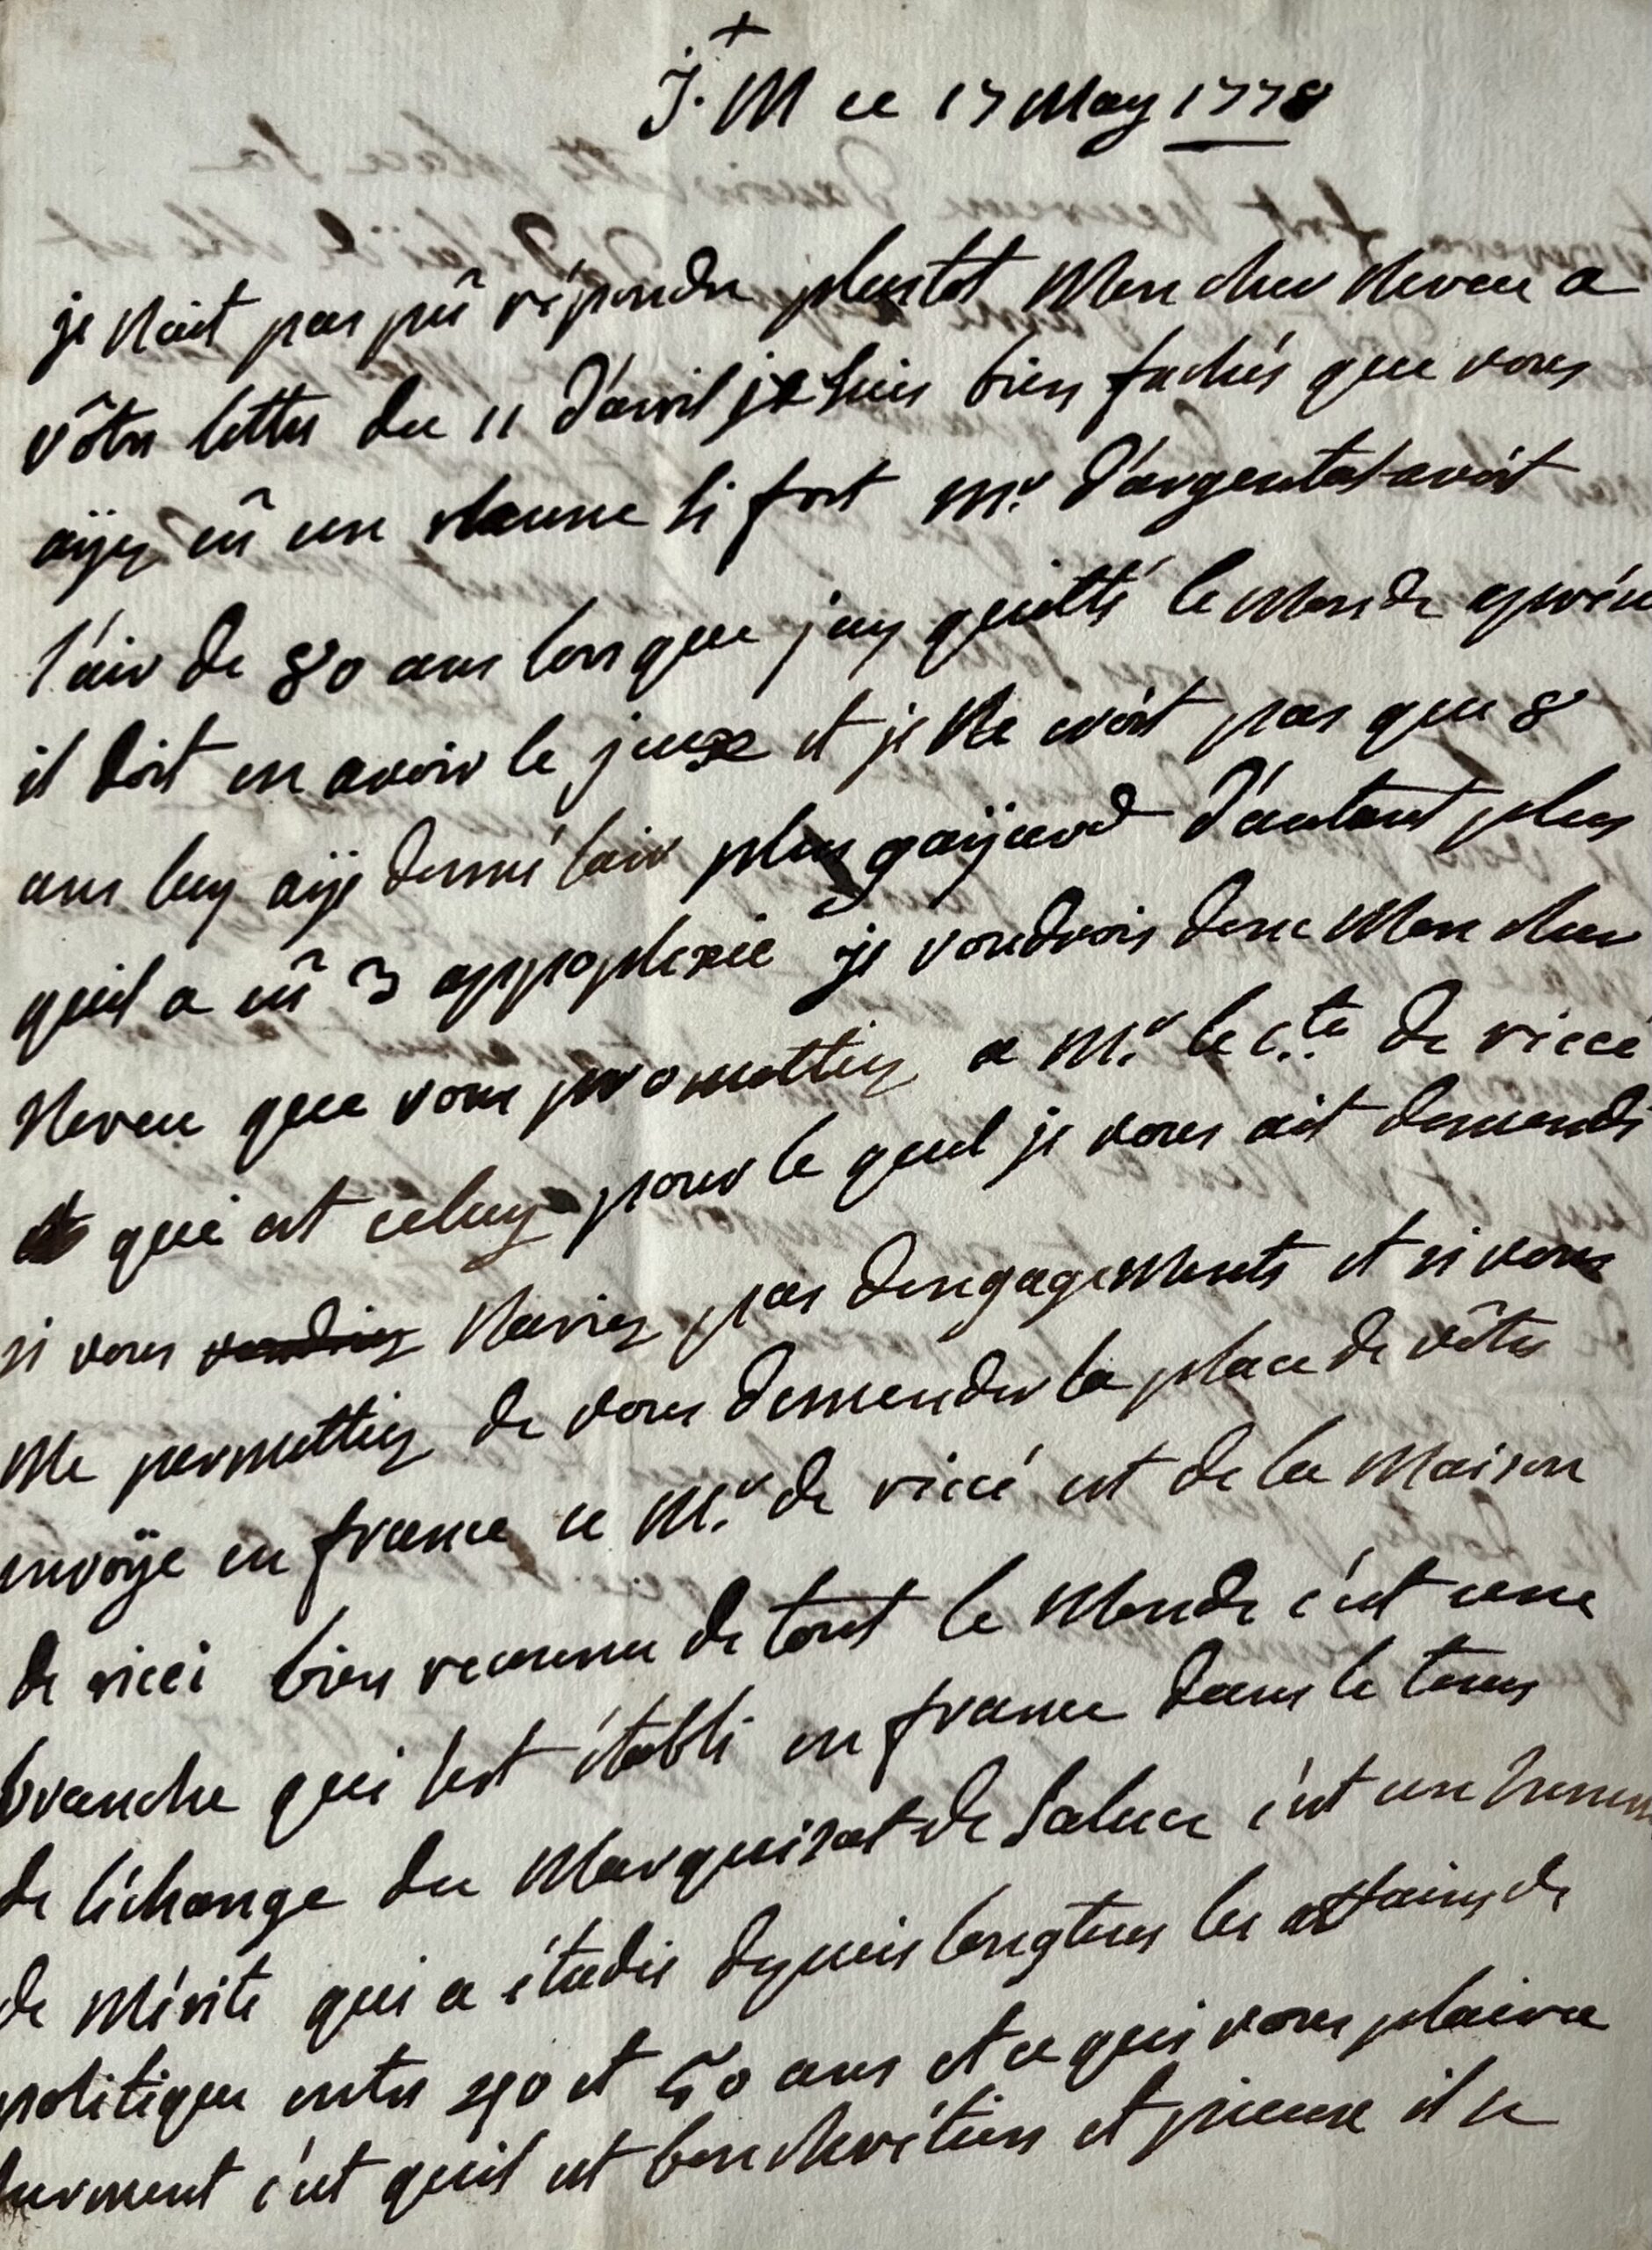 +
J. M ce 17 May 1778
je nait pas pû répondre plustot Mon cher Neveu a
vôtre lettre du 11 d'avril je suis bien fachés que vous
aÿez eû un rhume si fort Mr. d'argental avoit
l'air de 80 ans lors que j'ay quitté le Monde a present
il doit en avoir le jeuxe et je Ne croit pas que 8
ans luy aÿe donné lair plus gaÿard d'autant plus
quil a eû 3 appoplexie je voudrois donc Mon cher
Neveu que vous promettiez a Mr. le cte. de ricce
qui est celuy pour le quel je vous ait demandé
si vous Naviez pas dengagements et si vous
Me permettiez de vous demender la place de vôtre
envoÿe en france ce Mr. de riccé est de la Maison
de ricci bien reconnu de tout le Monde c'est une
branche qui s'est établi en france dans le tems
de léchange du Marquisat de Saluce c'est un homme
de Mérite qui a étudie depuis longtems les affaires de
politique entre 40 et 50 ans et ce qui vous plaira
surement c'est quil est bon chrétien et pieuxe il a